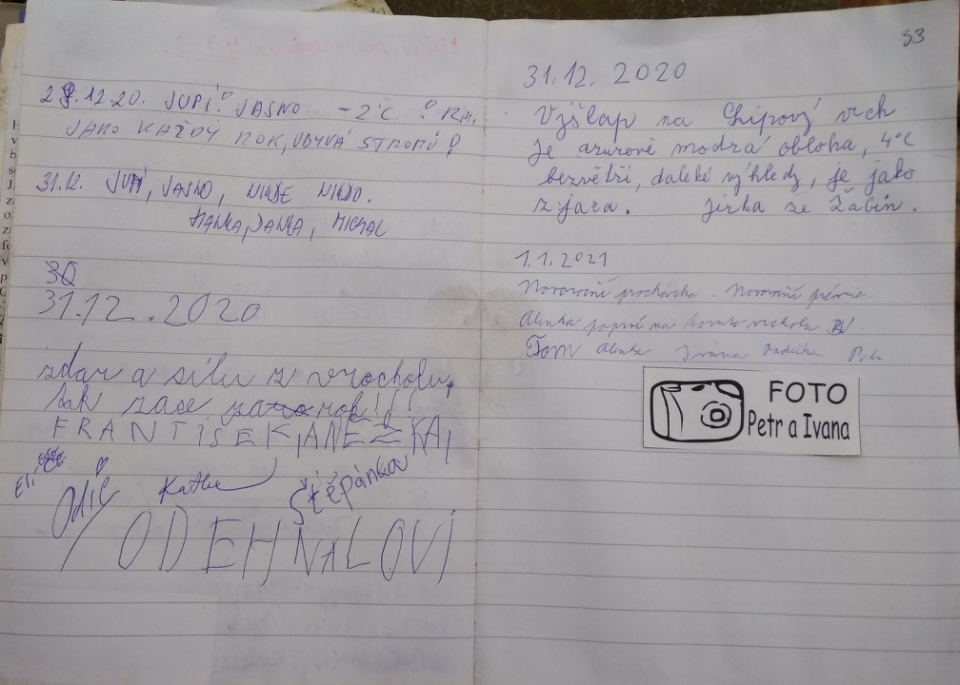 28.12.20. JUPÍ! JASNO -2°C! RH.
JAKO KAŽDÝ ROK, UBÝVÁ STROMŮ!
31.12. JUPÍ, JASNO, NIKDE NIKDO.
HANKA, JANKA, MICHAL
31.12.2020
zdar a sílu z vrcholu,
tak zase za rok!!!
FRANTIŠEK, ANEŽKA,
Kathe Štěpánka
ODEHNALOVI
33
31.12. 2020
Výšlap na Chlpový vrch
je azurově modrá obloha, 4°C
bezvětří, daleké výhledy, je jako
z jara. Jirka ze Žabin.
1.1.2021
Novoroční procházka. Novoroční prémie.
Alenka poprvé na tomto vrcholu
Tom Alenka Ivana Petr
FOTO
Petr a Ivana